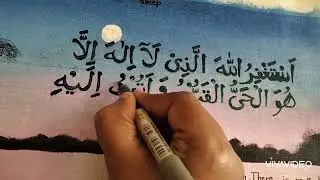 اَسْتَغْفِرُ اللهَ الَّذِىْ لَآ اِلٰهَ اِلَّا
هُوَ الْحَىُّ الْقَيُّوْمُ وَ اَتُوْبُ اِلَيْهِ
VIVAVIDEO